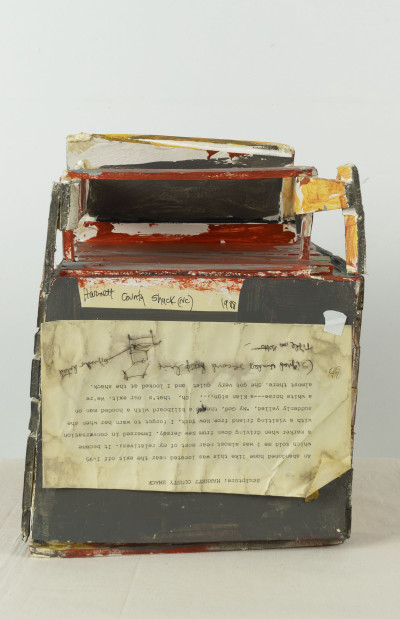 Harnett County Shack (NC) 1988
Sculpture: HARNETT COUNTY SHACK
An abandoned house like this was located near the exit off I-95
which told me I was almost near most of my relatives. It became
a marker when driving down from New Jersey. Immersed in conversation
with a visiting friend from New York, I forgot to warn her when she
suddenly yelled, "My God, there's a billboard with a hooded man on
a white horse---a Klan sign,... Oh, that's our exit. We're
almost there. She got very quiet and I looked at the shack.
Title on bottom